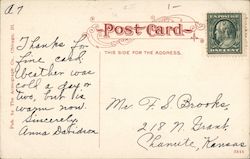 A7
Post Card
THIS SIDE FOR THE ADDRESS.
Thanks for
fine card.
Weather was
cold a day or
two, but is
warm now.
Sincerely,
Anna Davidson
Mr. F. S. Brooks,
218 N. Grant,
Chanute, Kansas